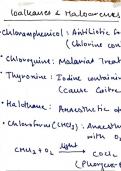 Haloalkanes & Haloarenes
•Chloramphenicol: Antibiotic f
(Chlorine con
•Chloroquine: Malaria Treat
•Thyroxine: Iodine containin
(Cause Goitre
•Halothane: Anaesthetic
•Chloroform(CHCl3): Anaesth
with O2
CHCl3+O2 light COCl2
(Phosgene